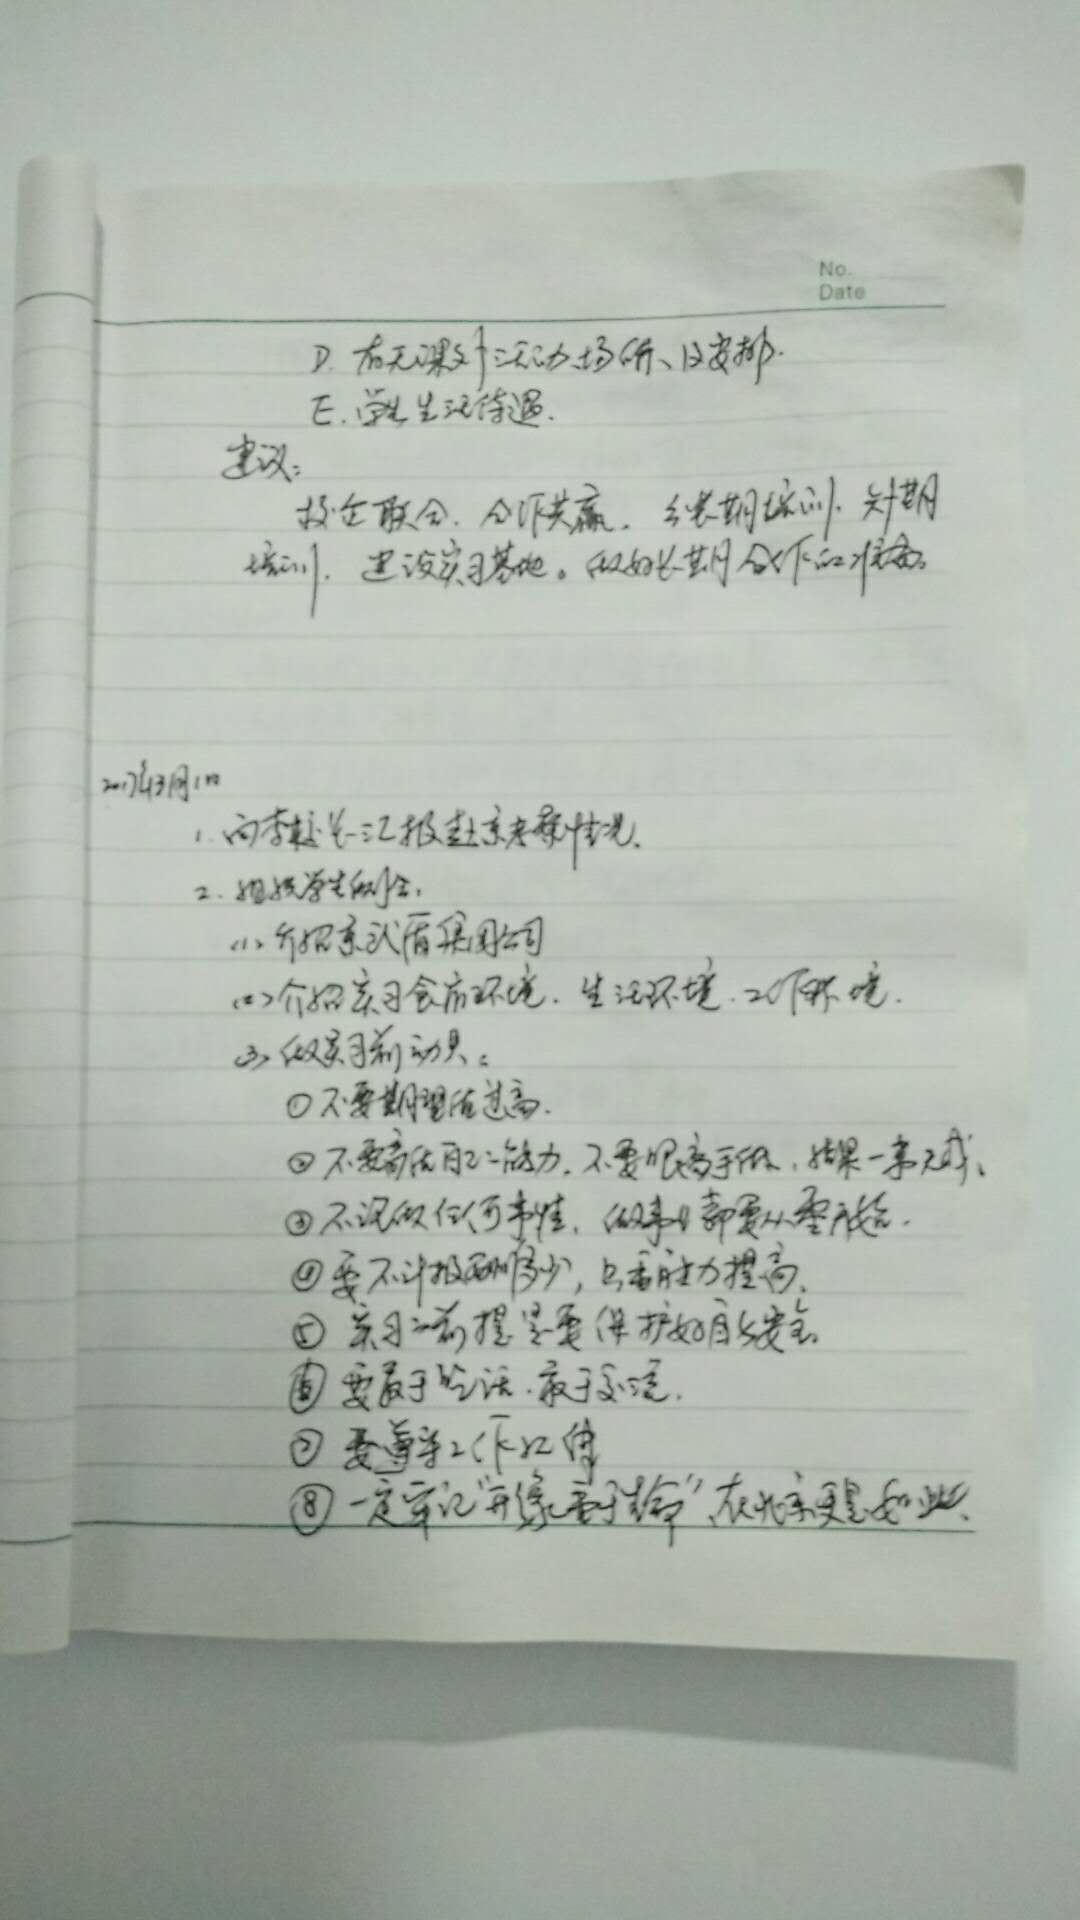 No.
Date
D. 有无课外活动场所、及安排.
E. 学生生活待遇.
建议:
校企联合. 合作共赢. 长期培训. 短期
培训. 建设实习基地。做好长期合作的准备。
2017年3月1日
1. 向李校长汇报赴京考察情况.
2. 组织学生例会.
(1) 介绍京武盾集团公司
(2) 介绍实习食宿环境. 生活环境. 工作环境.
(3) 做实习前动员:
① 不要期望值过高.
② 不要高估自己能力. 不要眼高手低. 结果一事无成.
③ 不论做任何事情. 做事业都要从零开始.
④ 要不计报酬多少, 只看能力提高.
⑤ 实习的前提是要保护好自身安全.
⑥ 要敢于说话. 敢于交流.
⑦ 要遵守工作纪律
⑧ 一定牢记"形象重于生命", 在北京更是如此.